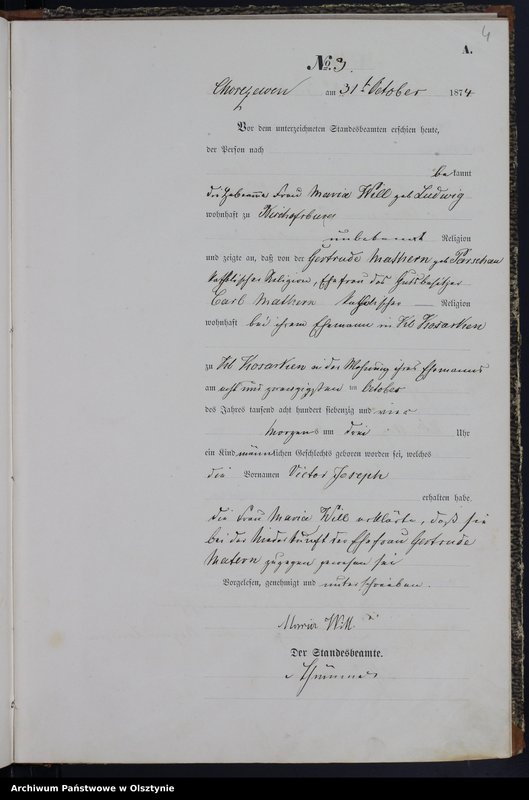 4
A.
No. 3.
am 31ten October 1874
Vor dem unterzeichneten Standesbeamten erschien heute,
der Person nach
bekannt
die Hebamme Frau Maria Will geb Ludwig
wohnhaft zu Bischofsburg
unbekannt Religion
und zeigte an, daß von der Gertrude Mathern geb
katholischer Religion, Ehefrau des Gutsbesitzer
Carl Mathern katholischer Religion
wohnhaft bei ihrem Ehemann in Kl Kosarken
zu Kl Kosarken in der Wohnung ihres Ehemanns
am acht und zwanzigsten ten October
des Jahres tausend acht hundert siebenzig und vier
Morgens um drei Uhr
ein Kind männlichen Geschlechts geboren worden sei, welches
die Vornamen Victor Joseph
erhalten habe.
Die Frau Maria Will erklärte, daß sie
bei der Niederkunft der Ehefrau Gertrude
Matern zugegen gewesen sei
Vorgelesen, genehmigt und unterschrieben.
Maria Will
Der Standesbeamte.
Archiwum Państwowe w Olsztynie